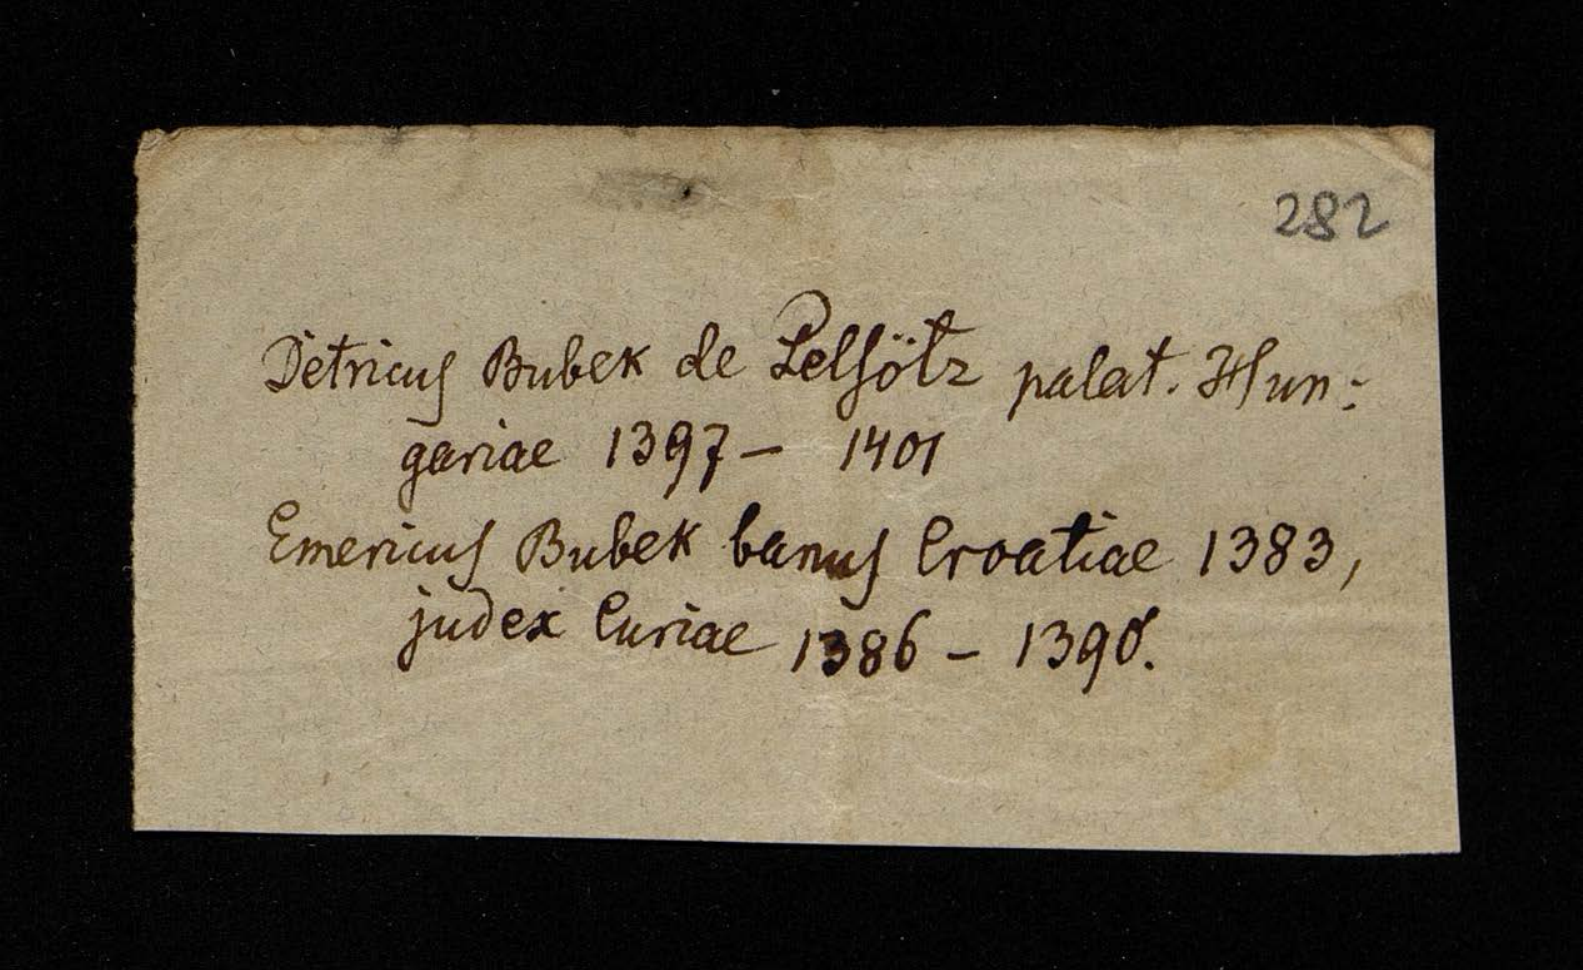 282
Detricus Bubek de Pelsötz palat. Hun:
gariae 1397 – 1401
Emericus Bubek banus Croatiae 1383,
judex Curiae 1386 – 1390.